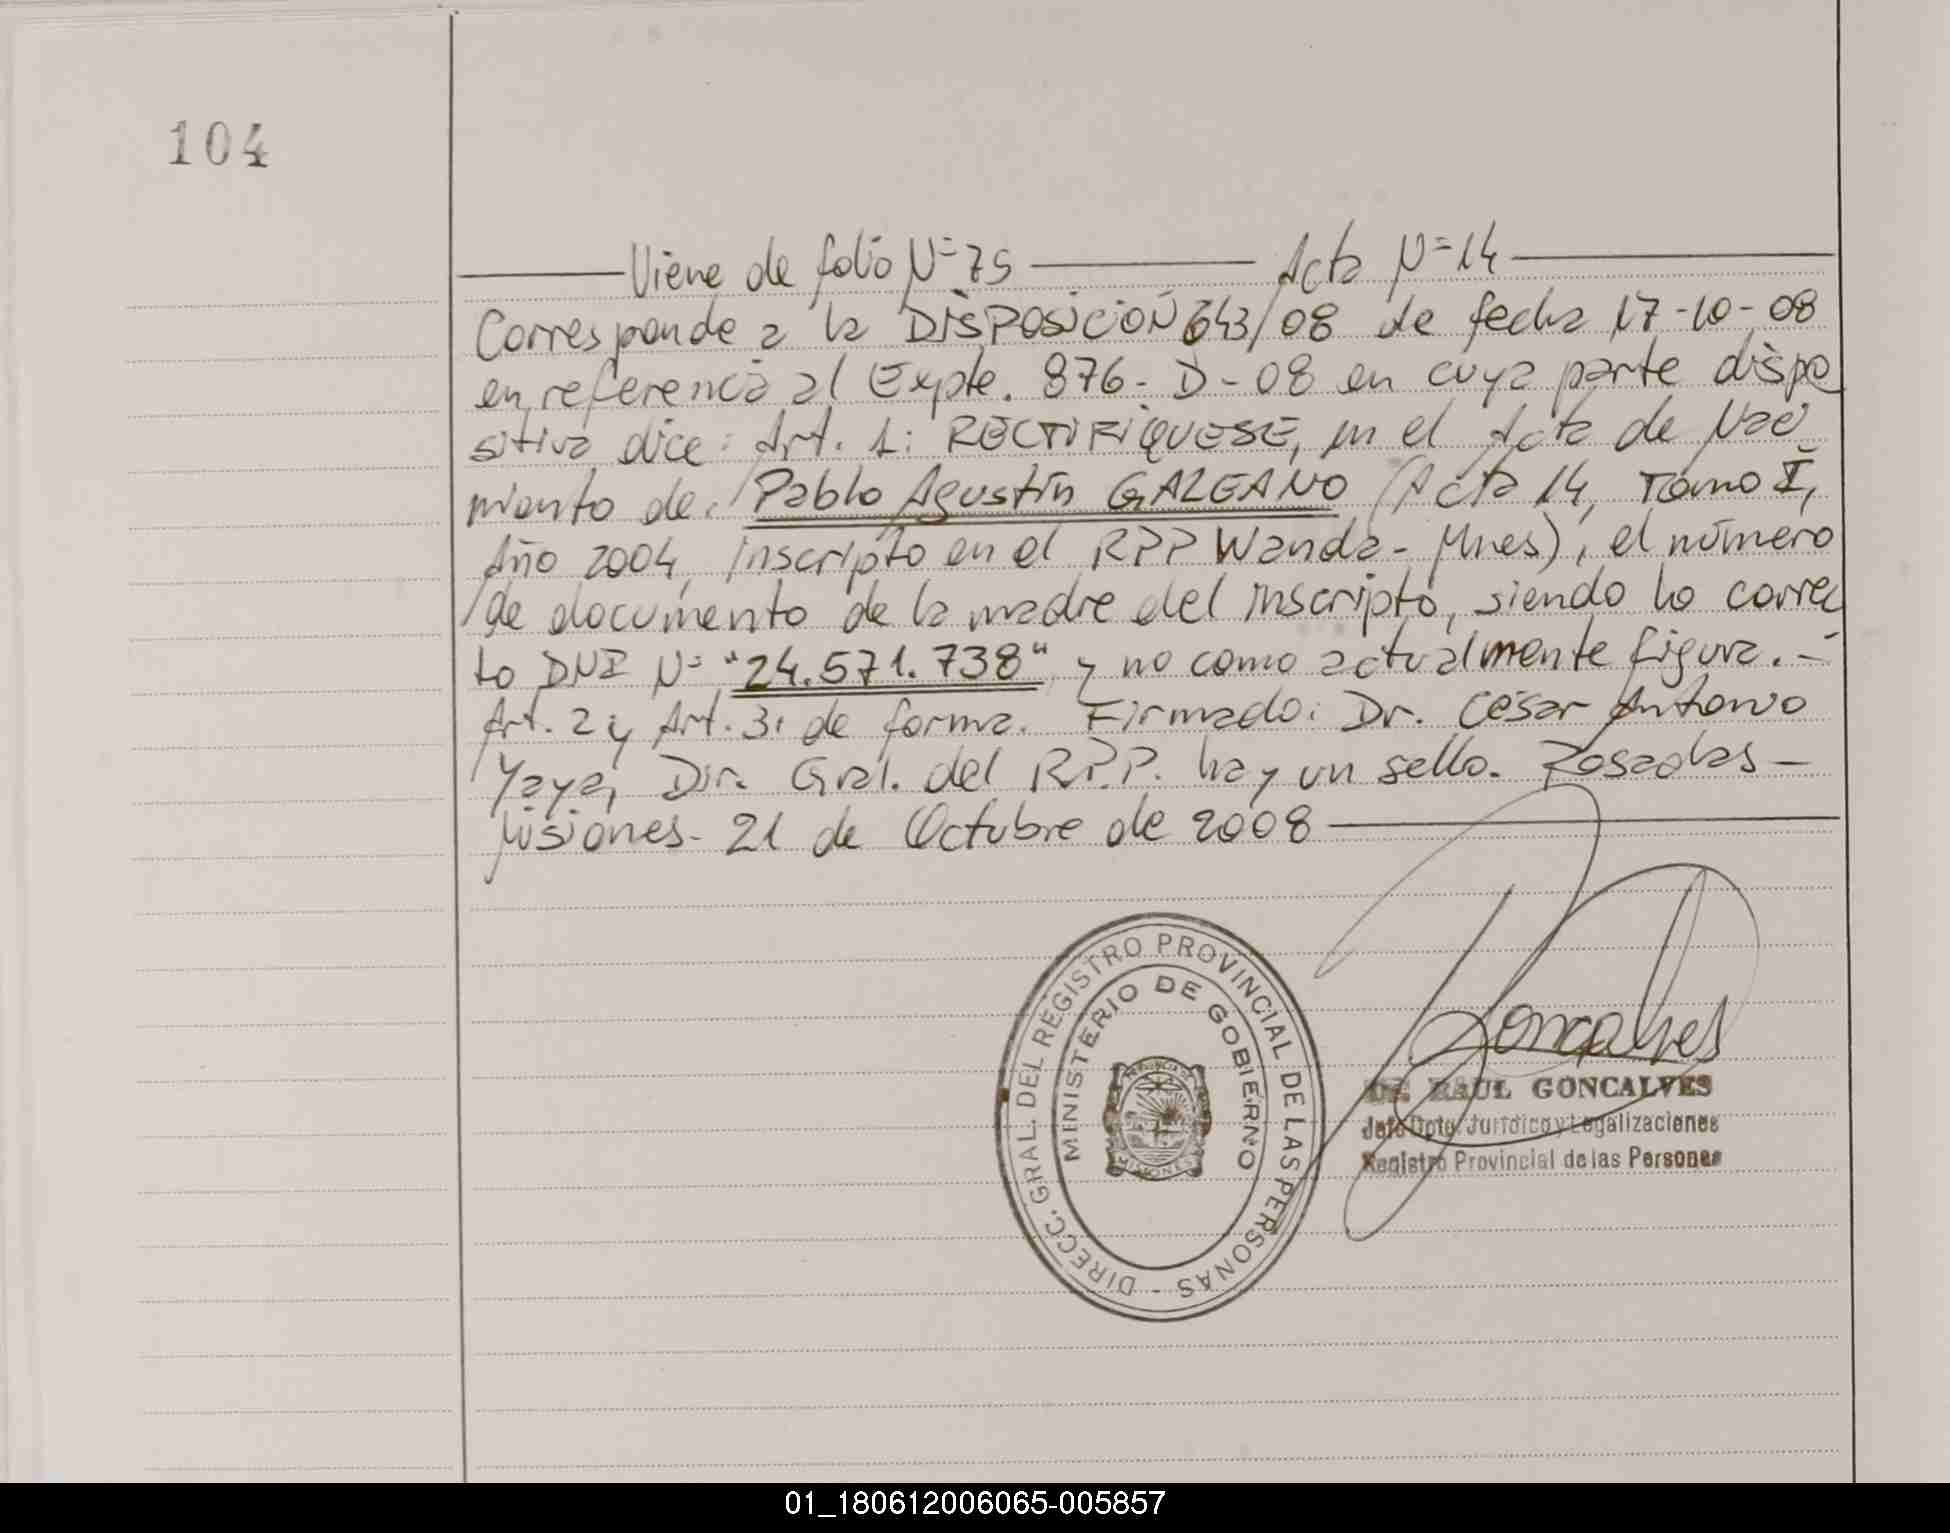 104
Viene de folio Nº 75 Acta Nº 14
Corresponde a la DISPOSICIÓN 643/08 de fecha 17-10-08
en referencia al Expte. 876-D-08 en cuya parte dispo
sitiva dice: Art. 1: RECTIFIQUESE, en el Acta de Naci
miento de: Pablo Agustín GALEANO (Acta 14, Tomo I,
Año 2004, inscripto en el RPP Wanda - Mnes), el número
de documento de la madre del inscripto, siendo lo correc
to DNI Nº "24.571.738" y no como actualmente figura.-
Art. 2 y Art. 3: de forma. Firmado: Dr. César Antonio
Yaya, Dir. Gral. del RPP. hay un sello. Posadas -
Misiones - 21 de Octubre de 2008
DIRECC. GRAL. DEL REGISTRO PROVINCIAL DE LAS PERSONAS -
MINISTERIO DE GOBIERNO
PROVINCIA DE
MISIONES
Goncalves
DR. RAUL GONCALVES
Jefe Dpto. Jurídico y Legalizaciones
Registro Provincial de las Personas
01_180612006065-005857